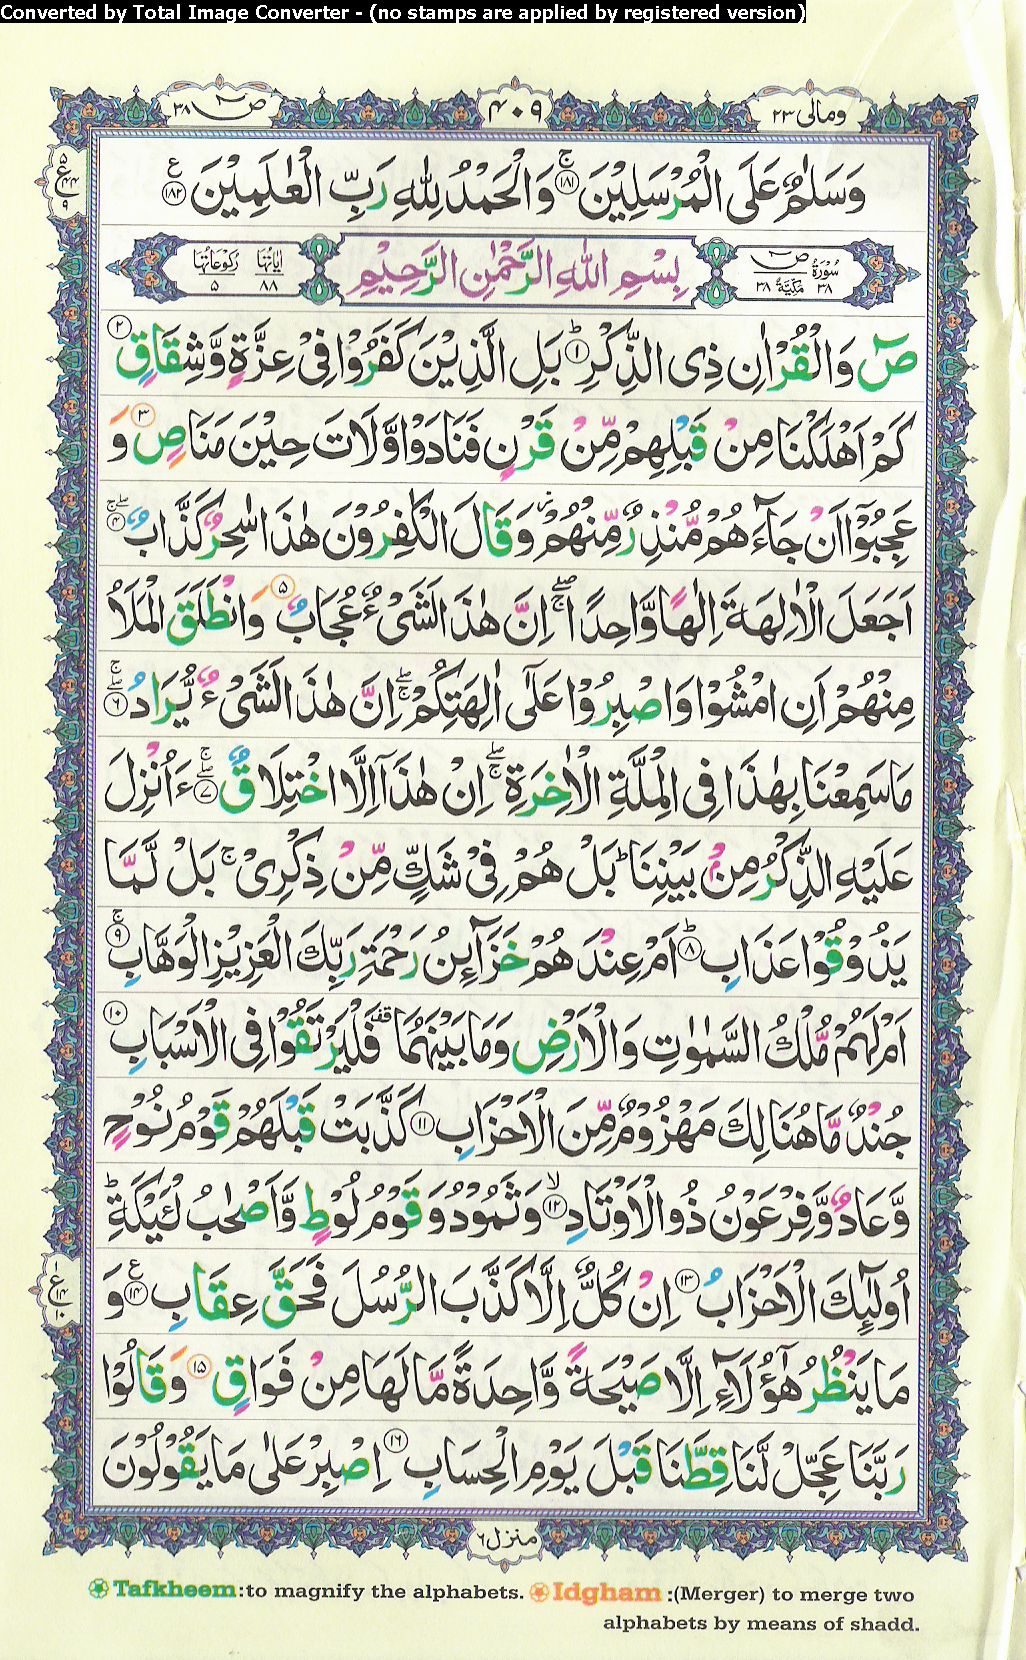 Converted by Total Image Converter - (no stamps are applied by registered version)
ومالی ۲۳
۴۰۹
صٓ ۳۸
وَسَلٰمٌ عَلَى الْمُرْسَلِيْنَ ۚ﴿۱۸۱﴾ وَالْحَمْدُ لِلّٰهِ رَبِّ الْعٰلَمِيْنَ ﴿۱۸۲﴾ ع
ع ۵ ۴۴ ۹
سُوْرَةُ صٓ مَكِّيَّةٌ ۳۸ ۳۸
بِسْمِ اللّٰهِ الرَّحْمٰنِ الرَّحِيْمِ
اٰيَاتُهَا ۸۸ رُكُوْعَاتُهَا ۵
صٓ وَالْقُرْاٰنِ ذِى الذِّكْرِ ؕ﴿۱﴾ بَلِ الَّذِيْنَ كَفَرُوْا فِىْ عِزَّةٍ وَّشِقَاقٍ ﴿۲﴾
كَمْ اَهْلَكْنَا مِنْ قَبْلِهِمْ مِّنْ قَرْنٍ فَنَادَوْا وَّلَاتَ حِيْنَ مَنَاصٍ ﴿۳﴾ وَ
عَجِبُوْۤا اَنْ جَآءَهُمْ مُّنْذِرٌ مِّنْهُمْ ؗ وَقَالَ الْكٰفِرُوْنَ هٰذَا سٰحِرٌ كَذَّابٌ ۖۚ﴿۴﴾
اَجَعَلَ الْاٰلِهَةَ اِلٰهًا وَّاحِدًا ۖۚ اِنَّ هٰذَا لَشَىْءٌ عُجَابٌ ﴿۵﴾ وَانْطَلَقَ الْمَلَاُ
مِنْهُمْ اَنِ امْشُوْا وَاصْبِرُوْا عَلٰٓى اٰلِهَتِكُمْ ۖۚ اِنَّ هٰذَا لَشَىْءٌ يُّرَادُ ۖۚ﴿۶﴾
مَا سَمِعْنَا بِهٰذَا فِى الْمِلَّةِ الْاٰخِرَةِ ۖۚ اِنْ هٰذَاۤ اِلَّا اخْتِلَاقٌ ۖۚ﴿۷﴾ ءَاُنْزِلَ
عَلَيْهِ الذِّكْرُ مِنْۢ بَيْنِنَا ؕ بَلْ هُمْ فِىْ شَكٍّ مِّنْ ذِكْرِىْ ۚ بَلْ لَّمَّا
يَذُوْقُوْا عَذَابِ ؕ﴿۸﴾ اَمْ عِنْدَهُمْ خَزَآئِنُ رَحْمَةِ رَبِّكَ الْعَزِيْزِ الْوَهَّابِ ۚ﴿۹﴾
اَمْ لَهُمْ مُّلْكُ السَّمٰوٰتِ وَالْاَرْضِ وَمَا بَيْنَهُمَا قف فَلْيَرْتَقُوْا فِى الْاَسْبَابِ ﴿۱۰﴾
جُنْدٌ مَّا هُنَالِكَ مَهْزُوْمٌ مِّنَ الْاَحْزَابِ ﴿۱۱﴾ كَذَّبَتْ قَبْلَهُمْ قَوْمُ نُوْحٍ
وَّعَادٌ وَّفِرْعَوْنُ ذُو الْاَوْتَادِ ۙ﴿۱۲﴾ وَثَمُوْدُ وَقَوْمُ لُوْطٍ وَّاَصْحٰبُ لْئَيْكَةِ ؕ
اُولٰٓئِكَ الْاَحْزَابُ ﴿۱۳﴾ اِنْ كُلٌّ اِلَّا كَذَّبَ الرُّسُلَ فَحَقَّ عِقَابِ ﴿۱۴﴾ ع وَ
ع ۱ ۱۴ ۱۰
مَا يَنْظُرُ هٰٓؤُلَآءِ اِلَّا صَيْحَةً وَّاحِدَةً مَّا لَهَا مِنْ فَوَاقٍ ﴿۱۵﴾ وَقَالُوْا
رَبَّنَا عَجِّلْ لَّنَا قِطَّنَا قَبْلَ يَوْمِ الْحِسَابِ ﴿۱۶﴾ اِصْبِرْ عَلٰى مَا يَقُوْلُوْنَ
منزل ۶
Tafkheem:to magnify the alphabets. Idgham:(Merger) to merge two
alphabets by means of shadd.